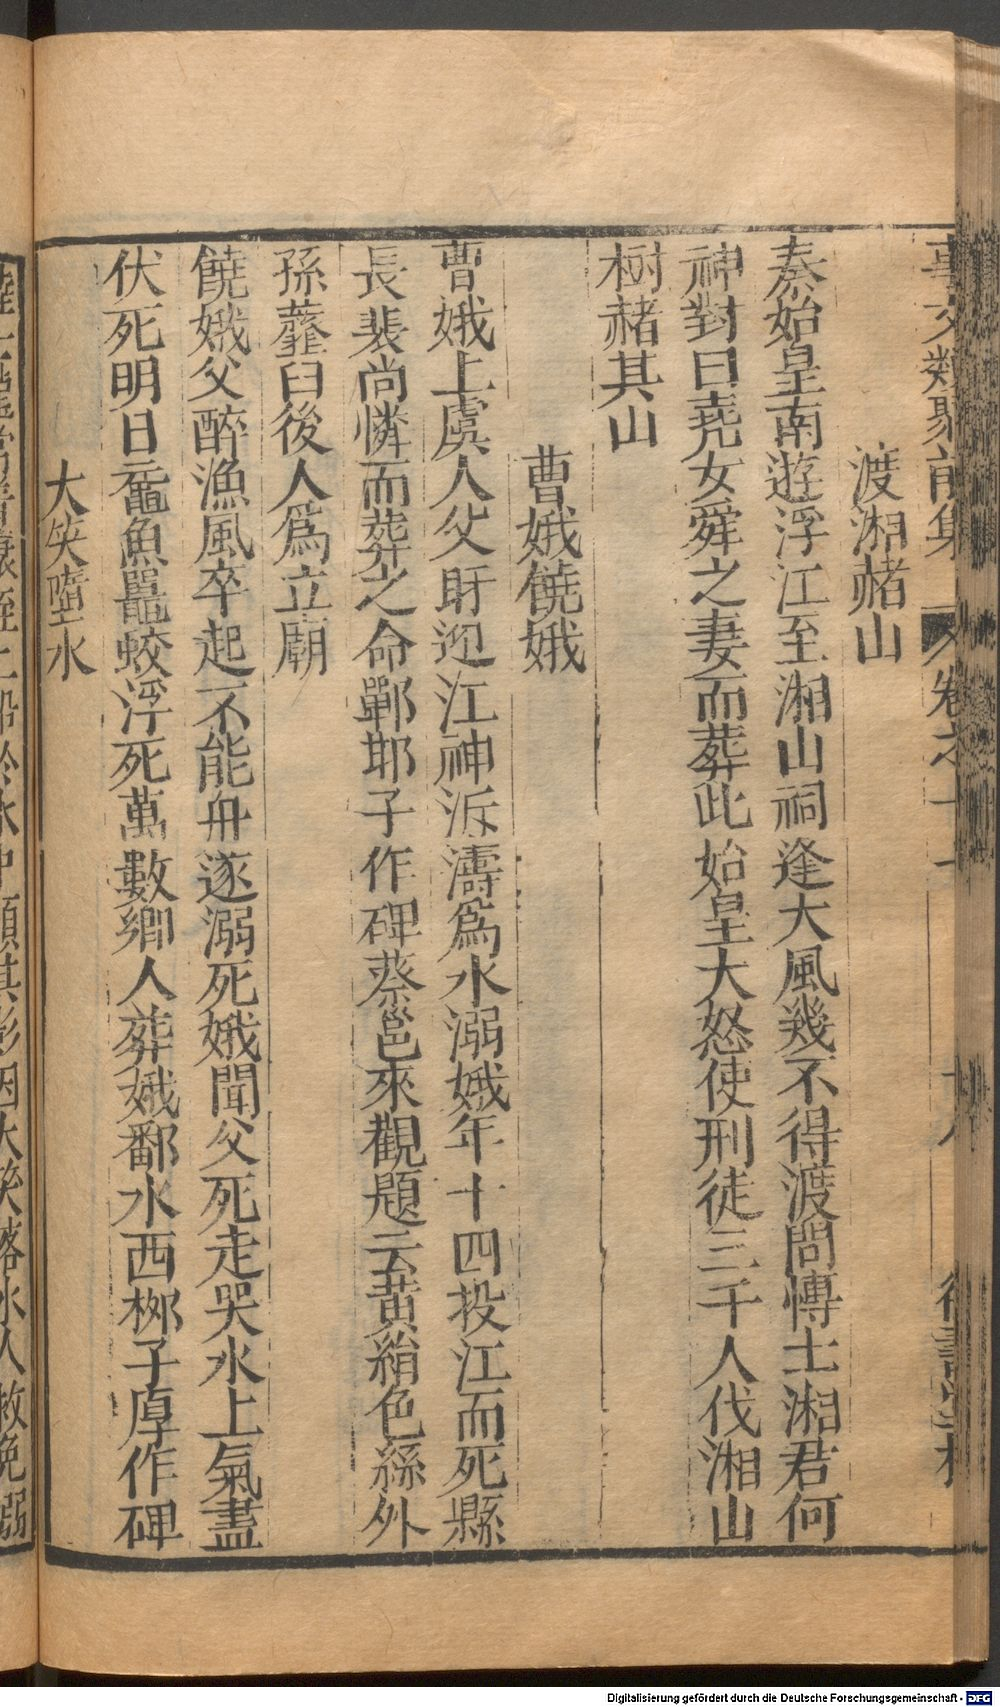 事文類聚前集 卷之十七
渡湘赭山
秦始皇南遊浮江至湘山祠逢大風幾不得渡問博士湘君何
神對曰堯女舜之妻而葬此始皇大怒使刑徒三千人伐湘山
樹赭其山
曹娥饒娥
曹娥上虞人父盱迎江神泝濤爲水溺娥年十四投江而死縣
長裴尚憐而葬之命鄲邯子作碑蔡邕來觀題云黄絹色絲外
孫虀臼後人爲立廟
饒娥父醉漁風卒起不能舟遂溺死娥聞父死走哭水上氣盡
伏死明日黿魚鼉蛟浮死萬數鄉人葬娥鄱水西栁子厚作碑
大笑墮水
船於水中顧其影因大笑落水人救免溺
Digitalisierung gefördert durch die Deutsche Forschungsgemeinschaft - DFG